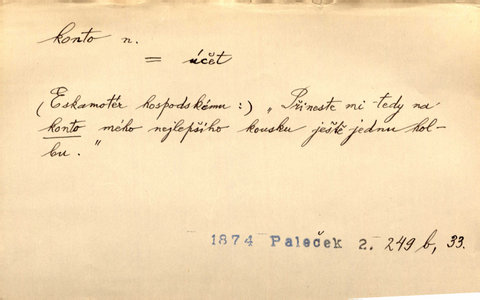 konto n.
= účet
(Eskamotér hospodskému:) „Přineste mi tedy na
konto mého nejlepšího kousku ještě jednu hol-
bu."
1874 Paleček 2. 249 b, 33.